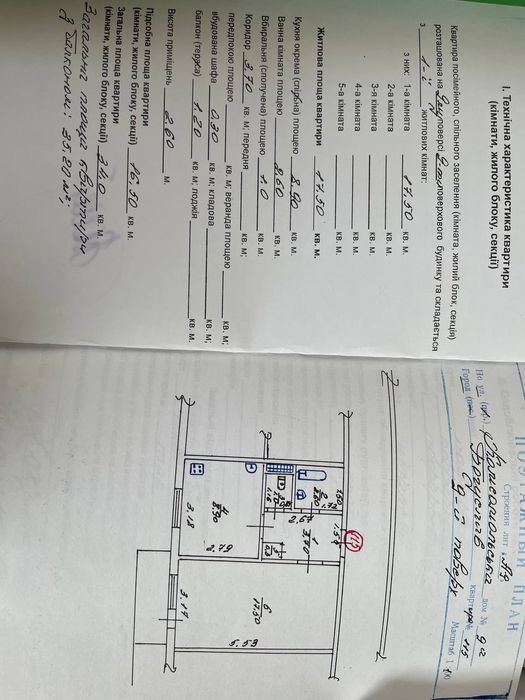 І. Технічна характеристика квартири
(кімнати, жилого блоку, секції)
Квартира посімейного, спільного заселення (кімната, жилий блок, секція)
розташована на поверсі поверхового будинку та складається
з 1-ї житлових кімнат:
з них: 1-а кімната 17,50 кв. м.
2-а кімната кв. м.
3-я кімната кв. м.
4-а кімната кв. м.
5-а кімната кв. м.
Житлова площа квартири 17.50 кв. м.
Кухня окрема (спільна) площею 8.90 кв. м.
Ванна кімната площею 2.60 кв. м.
Вбиральня (сполучена) площею 1.0 кв. м.
Коридор 3,70 кв. м; передня кв. м;
передпокою площею кв. м; веранда площею кв. м;
вбудована шафа 0.30 кв. м; кладова кв. м;
балкон (тераса) 1.20 кв. м; лоджія кв. м.
Висота приміщень 2.60 м.
Підсобна площа квартири
(кімнати, жилого блоку, секції) 16,50 кв. м.
Загальна площа квартири
(кімнати, жилого блоку, секції) 34.0 кв. м.
Загальна площа квартири
з балконом: 35.20 м²;
ПОЭТАЖНЫЙ ПЛАН
Строения лит.
По ул. (пл.) дом № 9а
Город (пос.) Богуслав квартира № 115
9-й поверх Масштаб 1:100
115
1.57
1
3.70
2
2.60
2,67
1.0
4
8.90
3.18
2.79
6
17.50
3.17
5.53